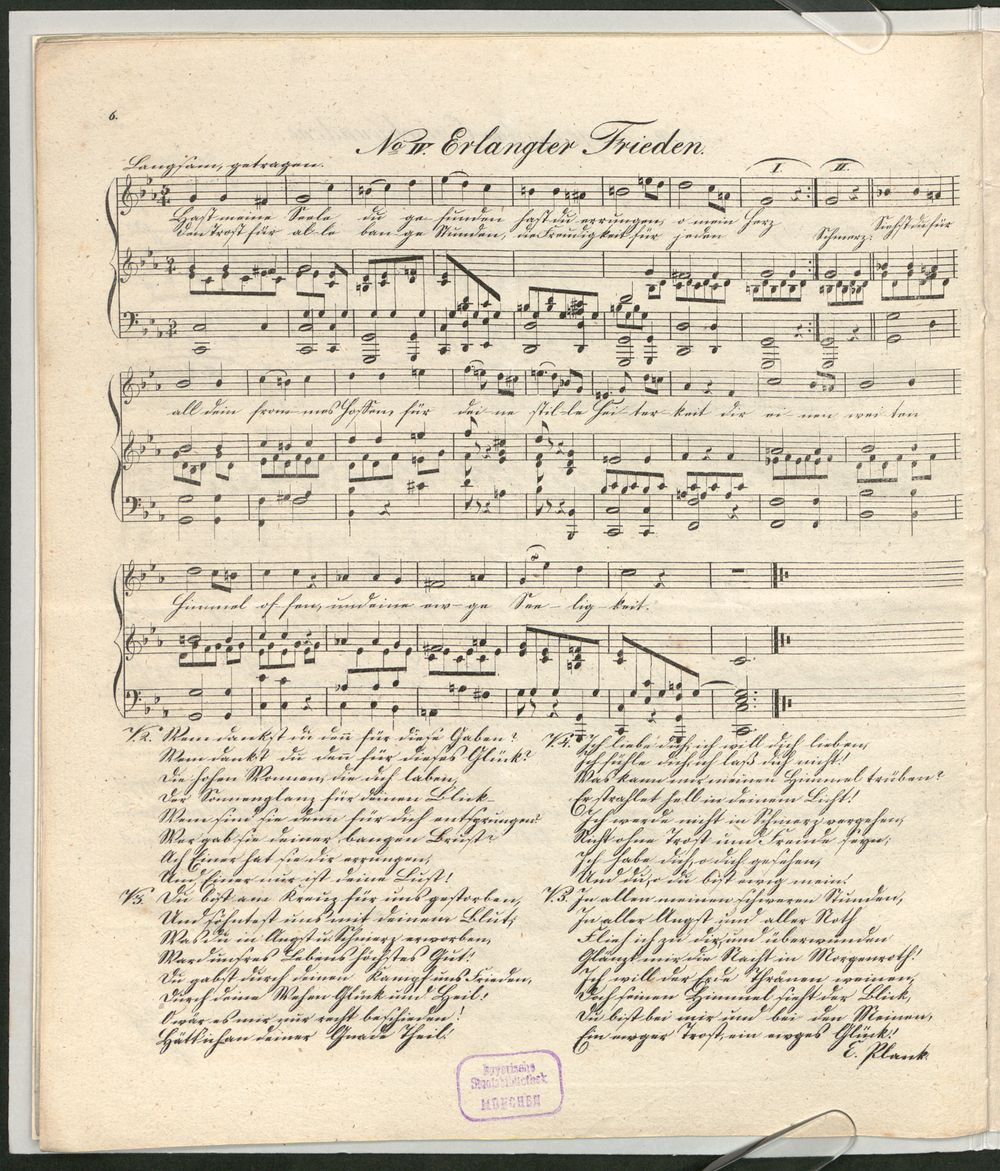 6.
No IV. Erlangter Frieden.
Langsam, getragen.
I. II.
Hast meine Seele du gefunden hast du errungen, o mein Herz Siehst du für
den Trost für al-le ban-ge Stunden, die Freudigkeit für jeden Schmerz.
all dein from-mes Hoffen für dei-ne stil-le Hei-ter-keit dir ei-nen wei-ten
Himmel of-fen, und eine ew-ge See-lig-keit.
V.2. Wem dankst du den̄ für diese Gaben?
Wem dankst du den̄ für dieses Glück?
Die hohen Wonnen, die dich laben,
Der Sonnenglanz für deinen Blick
Wem sind sie denn für dich entsprungen?
Wer gab sie deiner bangen Brust?
Ach Einer hat sie dir errungen,
Und Einer nur ist deine Lust!
V.3. Du bist am Kreuz für uns gestorben,
Und söhntest uns mit deinem Blut;
Was du in Angst u. Schmerz erworben,
Ward unsres Lebens höchstes Gut!
Du gabst durch deinen Kampf uns Frieden,
Durch deine Wehen Glück und Heil!
O wär es mir nur recht beschieden!
Hätt ich an deiner Gnade Theil.
V.4. Ich liebe dich, ich will dich lieben,
Ich fühle dich ich laß dich nicht!
Was kann mir meinen Himmel trüben?
Er strahlet hell in deinem Licht!
Ich werde nicht in Schmerz vergehen,
Nicht ohne Trost und Freude seyn;
Ich habe dich, o dich gesehen,
Und du, o du bist ewig mein!
V.5. In allen meinen schweren Stunden,
In aller Angst und aller Noth
Flieh ich zu dir, und überwunden
Glänzt mir die Nacht in Morgenroth!
Ich will der Erde Thränen weinen,
Doch seinen Himmel sieht der Blick,
Du bist bei mir und bei den Meinen,
Ein ewger Trost, ein ewges Glück!
E. Planck.
Bayerische
Staatsbibliothek
MÜNCHEN